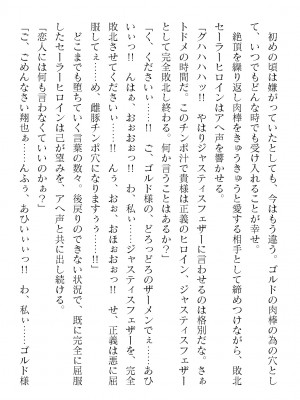 初めの頃は嫌がっていたとしても、今はもう違う。ゴルドの肉棒の為の穴として、いつでもどんな時でも受け入れることが幸せ。
絶頂を繰り返し肉棒をきゅうきゅうと愛する相手として締めつけながら、敗北セーラーヒロインはアヘ声を響かせる。
「グハハハハッ!!　やはりジャスティスフェザーに言わせるのは格別だな。さぁトドメの時間だ。このチンポ汁で貴様は正義のヒロイン、ジャスティスフェザーとして完全敗北し終わる。何か言うことはあるか？」
「く、くださいぃ…！　ご、ゴルド様の、どろっどろのザーメンでぇぇ…あひぃいっ!!　んはぁ、おぉおぉっ!!　わ、私ぃ……ジャスティスフェザーを、完全敗北させてくださいぃ……！　んぉ、おほぉおぉっ!!　せ、正義は悪に屈服してぇ……め、雌豚チンポ穴になりますぅぅ……!!」
どこまでも堕ちていく言葉の数々。後戻りのできない状況で、既に完全に屈服したセーラーヒロインは己が望みを、アヘ声と共に出し続ける。
「恋人には何も言わなくていいのかぁ？」
「ご、ごめんなさい翔也ぁ…んふぅ、あひぃいっ!!　わ、私ぃ……ゴルド様